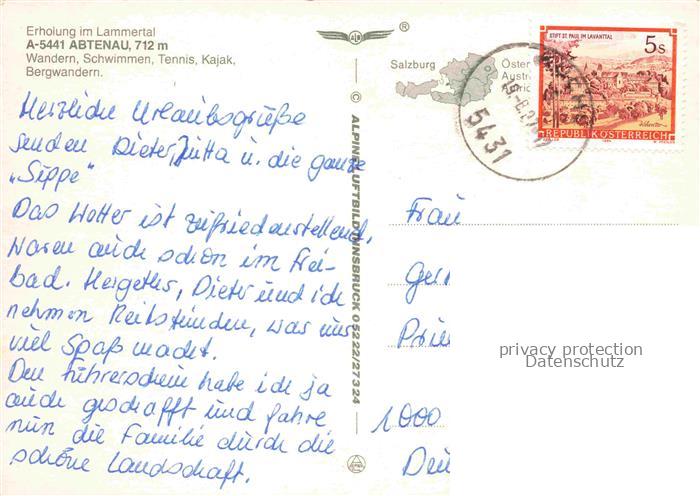 Erholung im Lammertal
A-5441 ABTENAU, 712 m
Wandern, Schwimmen, Tennis, Kajak,
Bergwandern.
Herzliche Urlaubsgrüße
senden Dieter, Jutta u. die ganze
„Sippe"
Das Wetter ist zufriedenstellend,
waren auch schon im Frei-
bad. Hergeths, Dieter und ich
nehmen Reitstunden, was uns
viel Spaß macht.
Den Führerschein habe ich ja
auch geschafft und fahre
nun die Familie durch die
schöne Landschaft.
© ALPINE LUFTBILD INNSBRUCK 05222/27324
®
Salzburg
Öster
Austr
STIFT ST. PAUL IM LAVANTTAL
5s
REPUBLIK ÖSTERREICH
5431
Frau
Ger
Prin
1000
Deu
privacy protection
Datenschutz